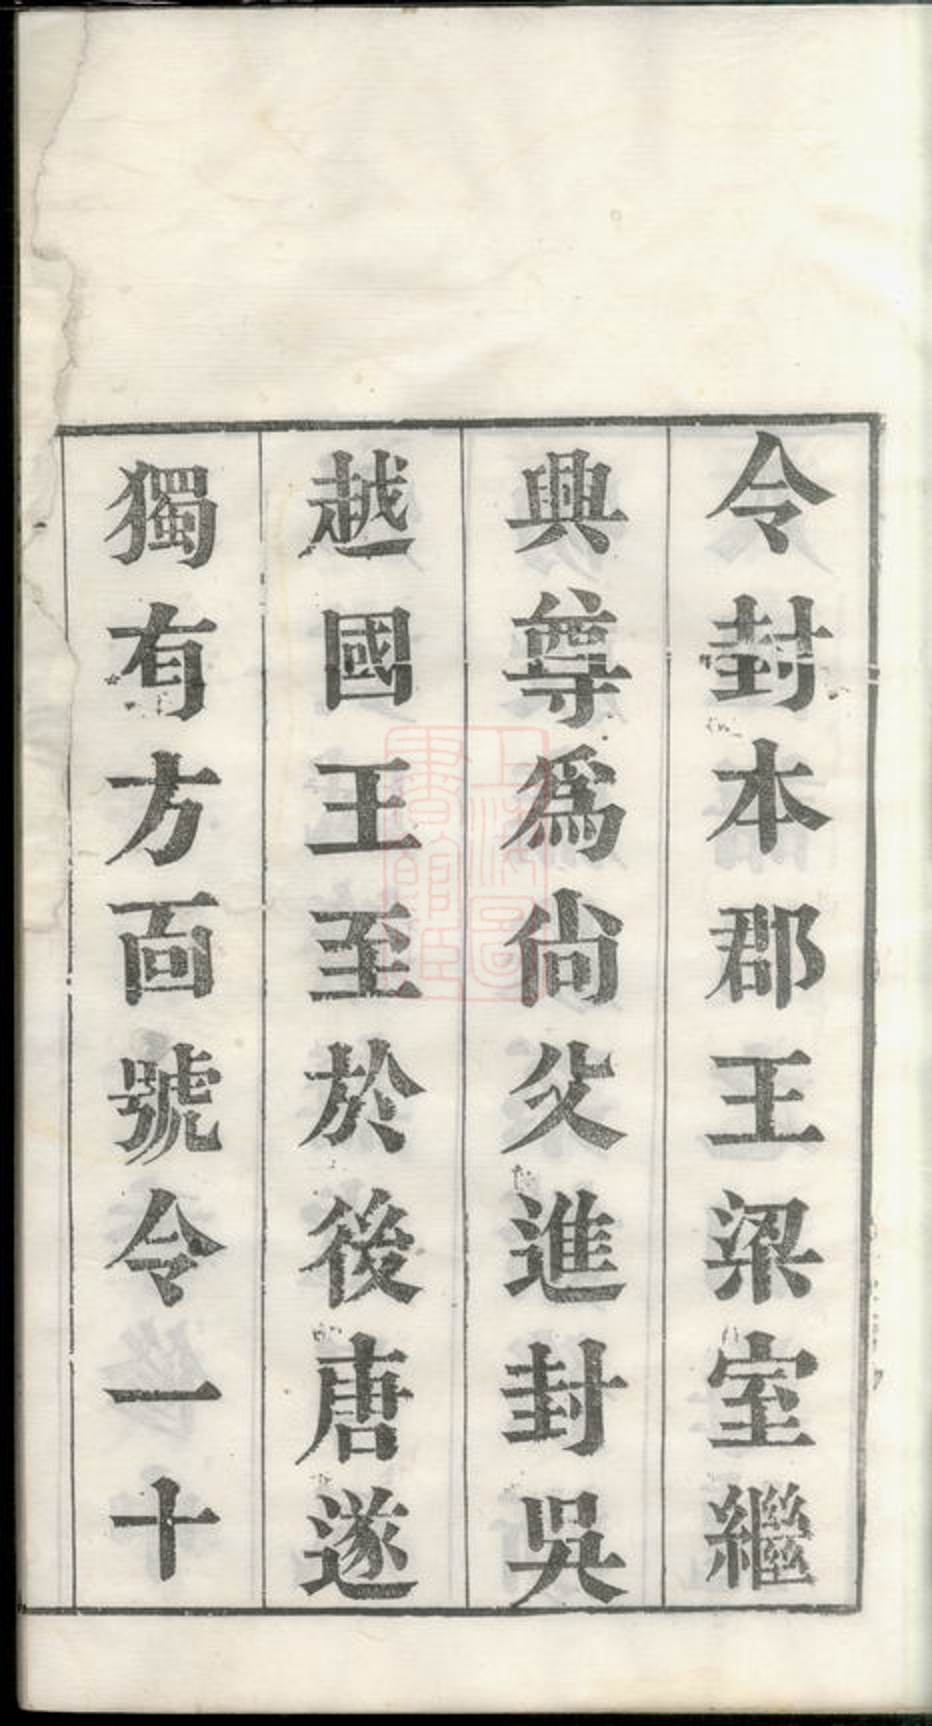 令封本郡王梁室繼
興尊爲尙父進封吳
越國王至於後唐遂
獨有方面號令一十
上海圖書館藏